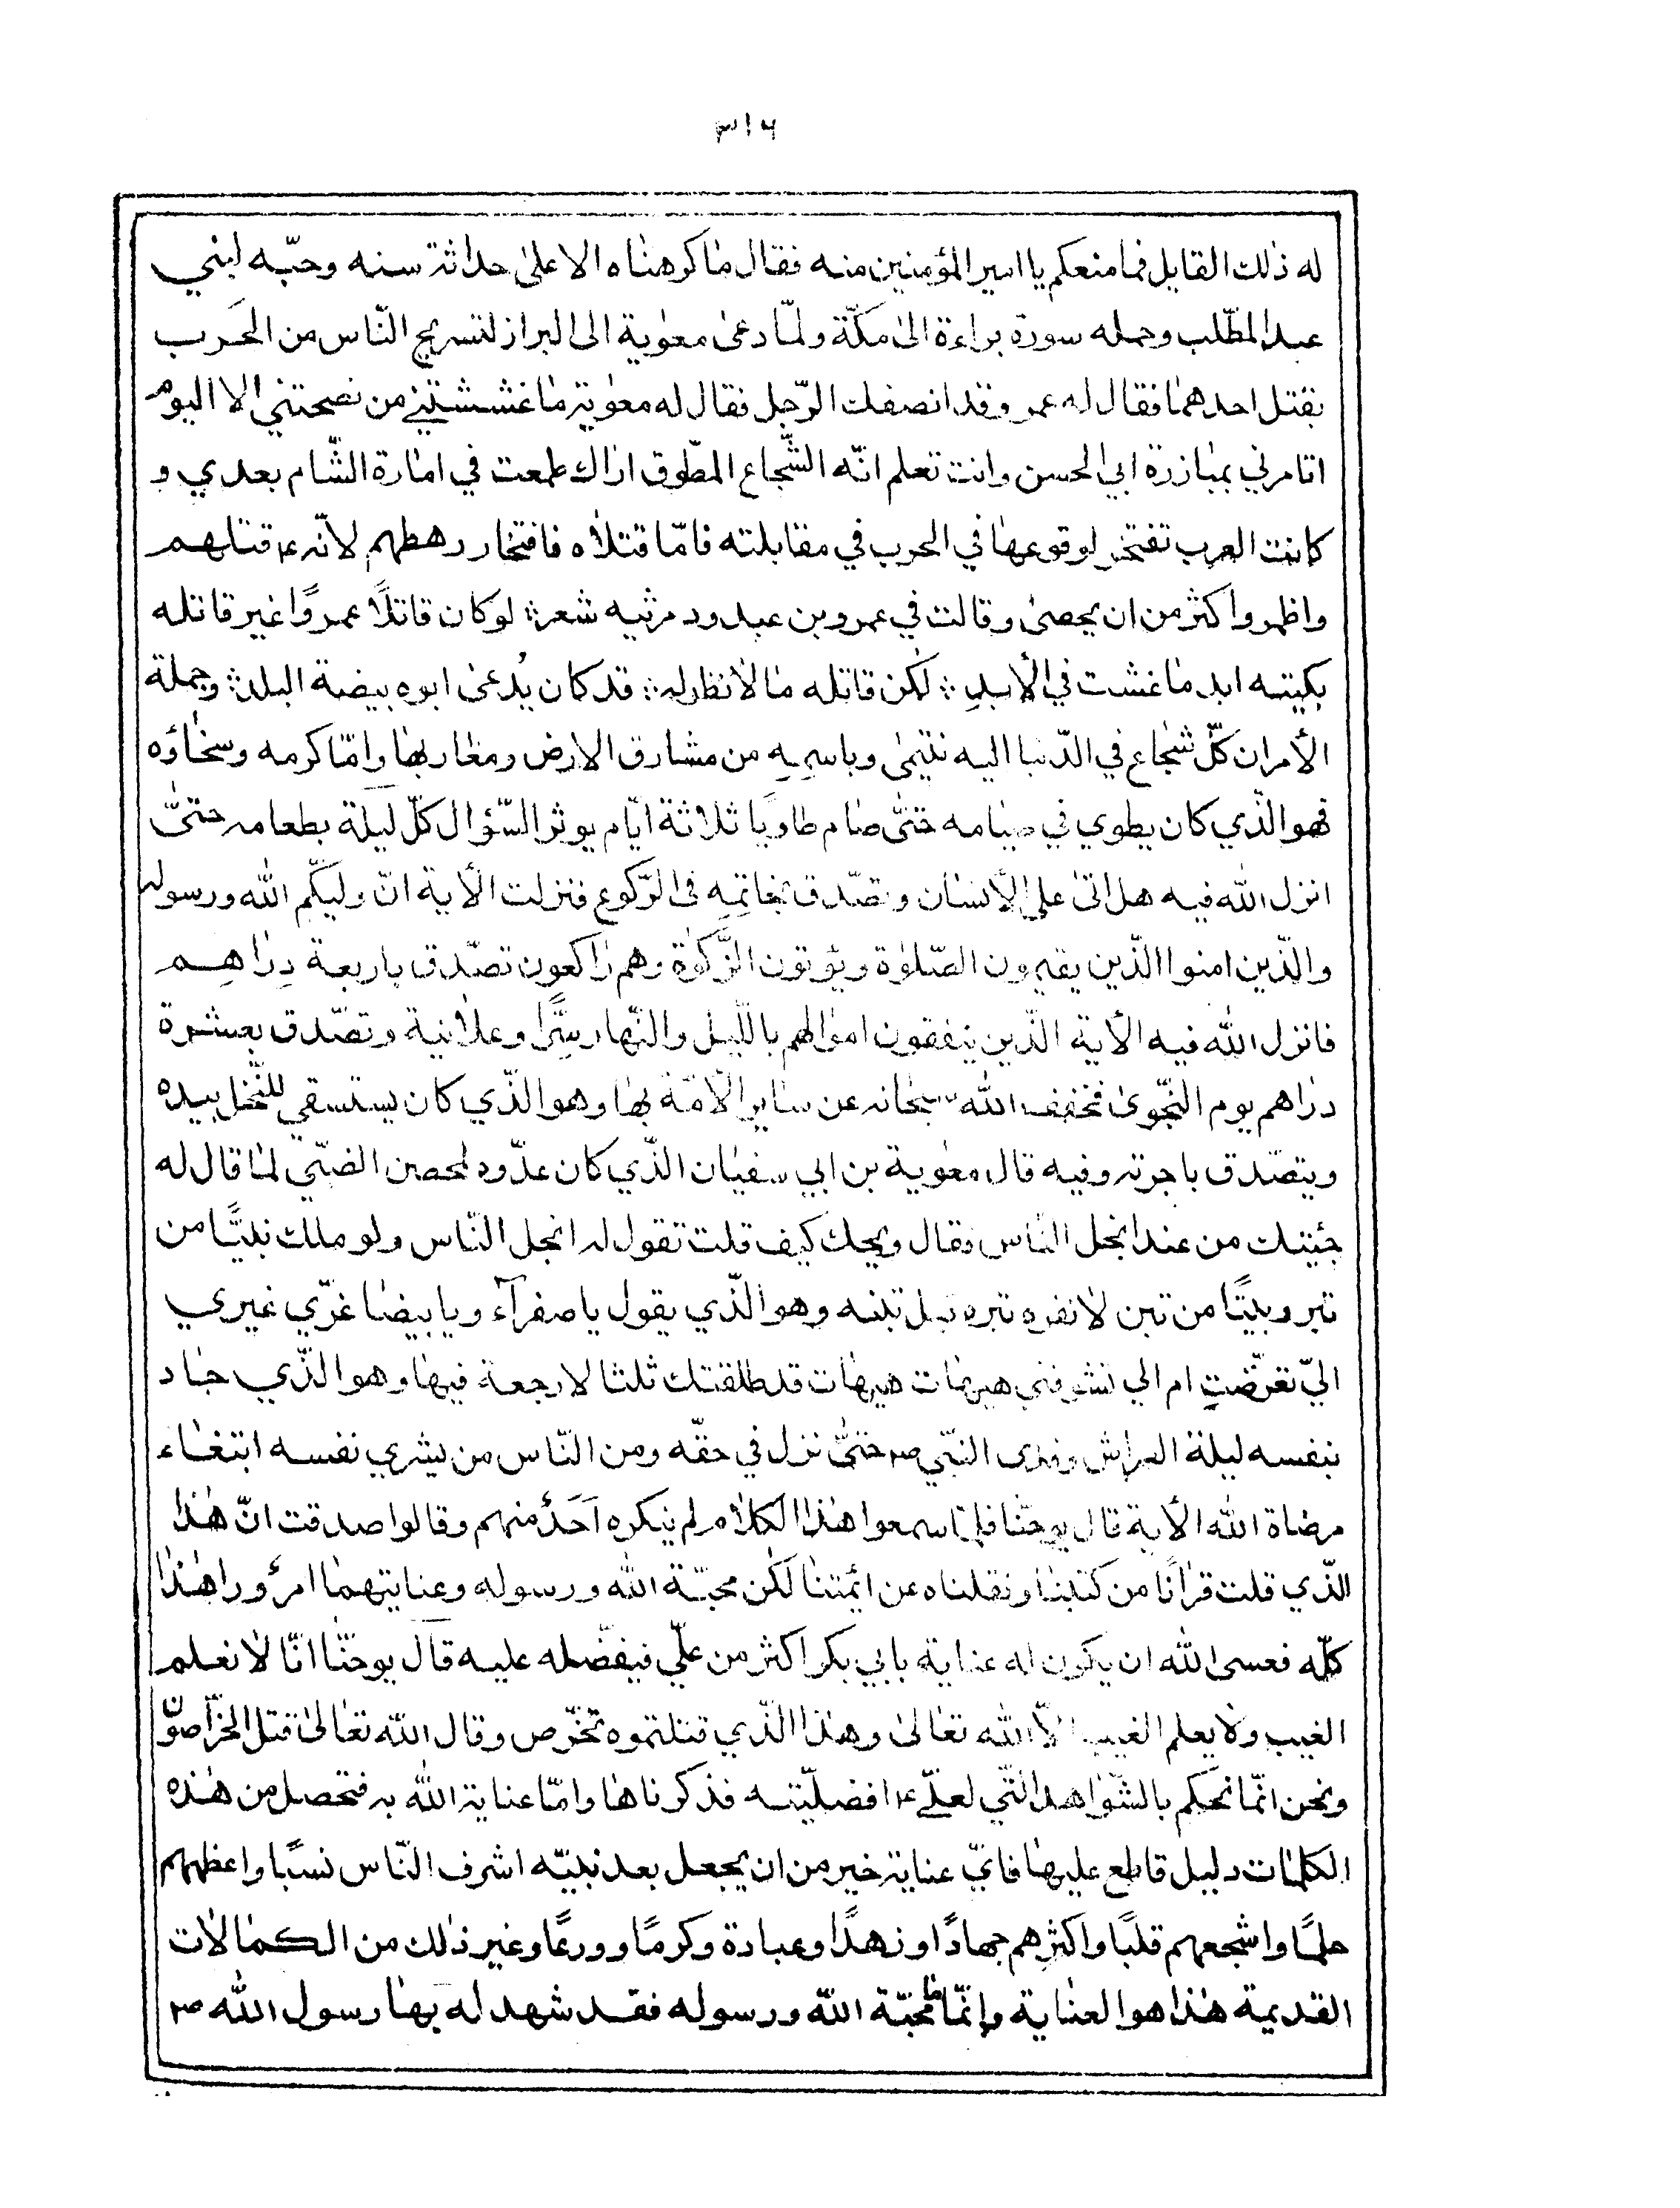 ٣١٦
له ذلك القايل فما منعكم يا امير المؤمنين منه فقال ما كرهناه الا على حداثة سنه وحبّه لبني
عبد المطّلب وحمله سورة براءة الى مكّة ولمّا دعى معوية الى البراز لتسريح النّاس من الحَرب
بقتل احدهما فقال له عمرو قد انصفك الرّجل فقال له معوية ما غششتني من نصحتني الا اليوم
اتامرني بمبارزة ابي الحسن وانت تعلم انّه الشّجاع المطّوق اراك طمعت في امارة الشّام بعدي و
كانت العرب تفتخر لوقوعها في الحرب في مقابلته فامّا قتلاه فافتخار رهطهم لانّه ع قتلهم
واظهر واكثر من ان يحصى وقالت في عمرو بن عبد ود مرثيه شعر لو كان قاتلًا عمروًا غير قاتله
بكيته ابد ما عشت في الأبدِ لكن قاتله ما لا نظار له قد كان يُدعى ابوه بيضة البلد وجملة
الأمر ان كلّ شجاع في الدّنيا اليه ينتمى وباسمِهِ من مشارق الارض ومغاربها وامّا كرمه وسخاؤه
فهو الّذي كان يطوي في صيامه حتّى صام طاويًا ثلاثة ايّام يوثر السّؤال كلّ ليلة بطعامه حتّى
انزل الله فيه هل اتى على الأنسان وتصّدق بخاتمِهِ في الرّكوع فنزلت الأية انّ وليّكم الله ورسوله
والّذين امنوا الّذين يقيمون الصّلوة ويؤتون الزّكوة وهم راكعون تصّدق باربعة دِراهِم
فانزل الله فيه الأية الّذين ينفقون اموالهم باللّيل والنّهار سِرًّا وعلانية وتصّدق بعشرة
دراهم يوم النّجوى فخفف الله سبحانه عن ساير الأمّة بها وهو الّذي كان يستسقي للنّخل بيده
ويتصّدق باجرته وفيه قال معوية بن ابي سفيان الّذي كان عدّوه لمحصن الضبّي لما قال له
جئتك من عند ابخل النّاس فقال ويحك كيف قلت تقول له ابخل النّاس ولو ملك بيتًا من
تبر وبيتًا من تبن لانفد تبره قبل تبنه وهو الّذي يقول يا صفرآء ويا بيضا غرّي غيري
اليّ تعرّضتِ ام الي تشوفتي هيهات هيهات قد طلقتك ثلثا لا رجعة فيها وهو الّذي جاد
بنفسه ليلة الفراش وفدى النبّي ص حتّى نزل في حقّه ومن النّاس من يشري نفسه ابتغاء
مرضاة الله الأية قال يوحنّا فلمّا سمعوا هذا الكلام لم ينكره اَحَدٌ منهم وقالوا صدقت انّ هذا
الّذي قلت قرانًا من كتبنا ونقلناه عن ائمّتنا لكن محبّة الله ورسوله وعنايتهما امرٌ ورا هذا
كلّه فعسى الله ان يكون له عناية بابي بكر اكثر من علّي فيفضّله عليه قال يوحنّا انّا لا نعلم
الغيب ولا يعلم الغيب الّا الله تعالى وهذا الّذي قتلتموه تخّرص وقال الله تعالى قتل الخّراصون
ونحن انّما نحكم بالشّواهد الّتي لعلّي ع افضليّته فذكرناها وامّا عناية الله به فتحصل من هذه
الكلمات دليل قاطع عليها فايّ عناية خير من ان يجعل بعد نبيّه اشرف النّاس نسبًا واعظمهم
حلمًا واشجعهم قلبًا واكثرهم جهادًا وزهدًا وعبادة وكرمًا وورعًا وغير ذلك من الكمالات
القديمة هذا هو العناية وامّا محبّة الله ورسوله فقد شهد له بها رسول الله ص